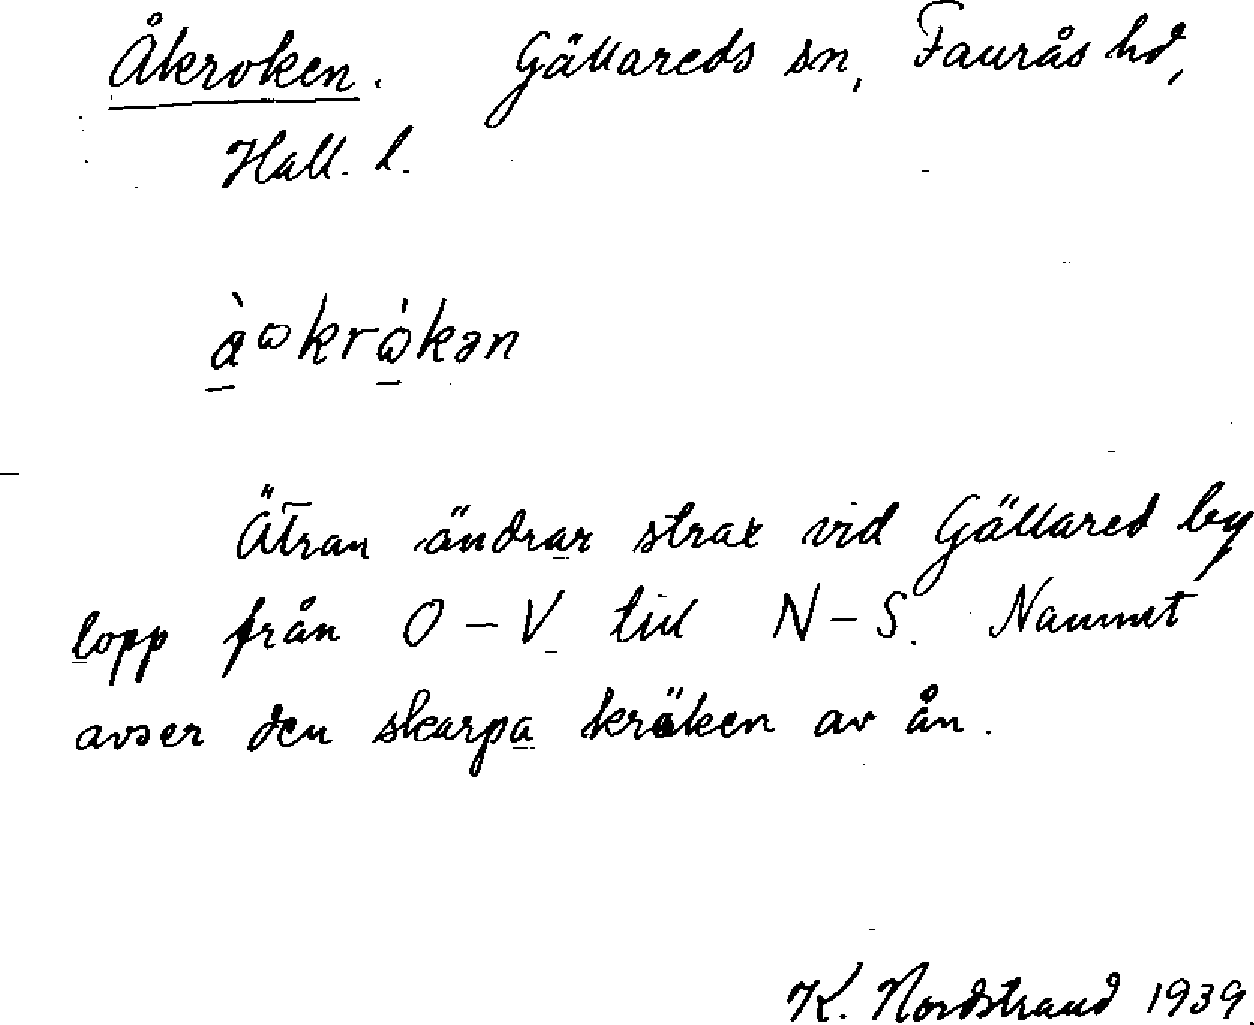 Åkroken. Gällareds sn, Faurås hd,
Hall. l.
Ätran ändrar strax vid Gällared by
lopp från O-V till N-S. Namnet
avser den skarpa kröken av ån.
K. Nordstrand 1939.